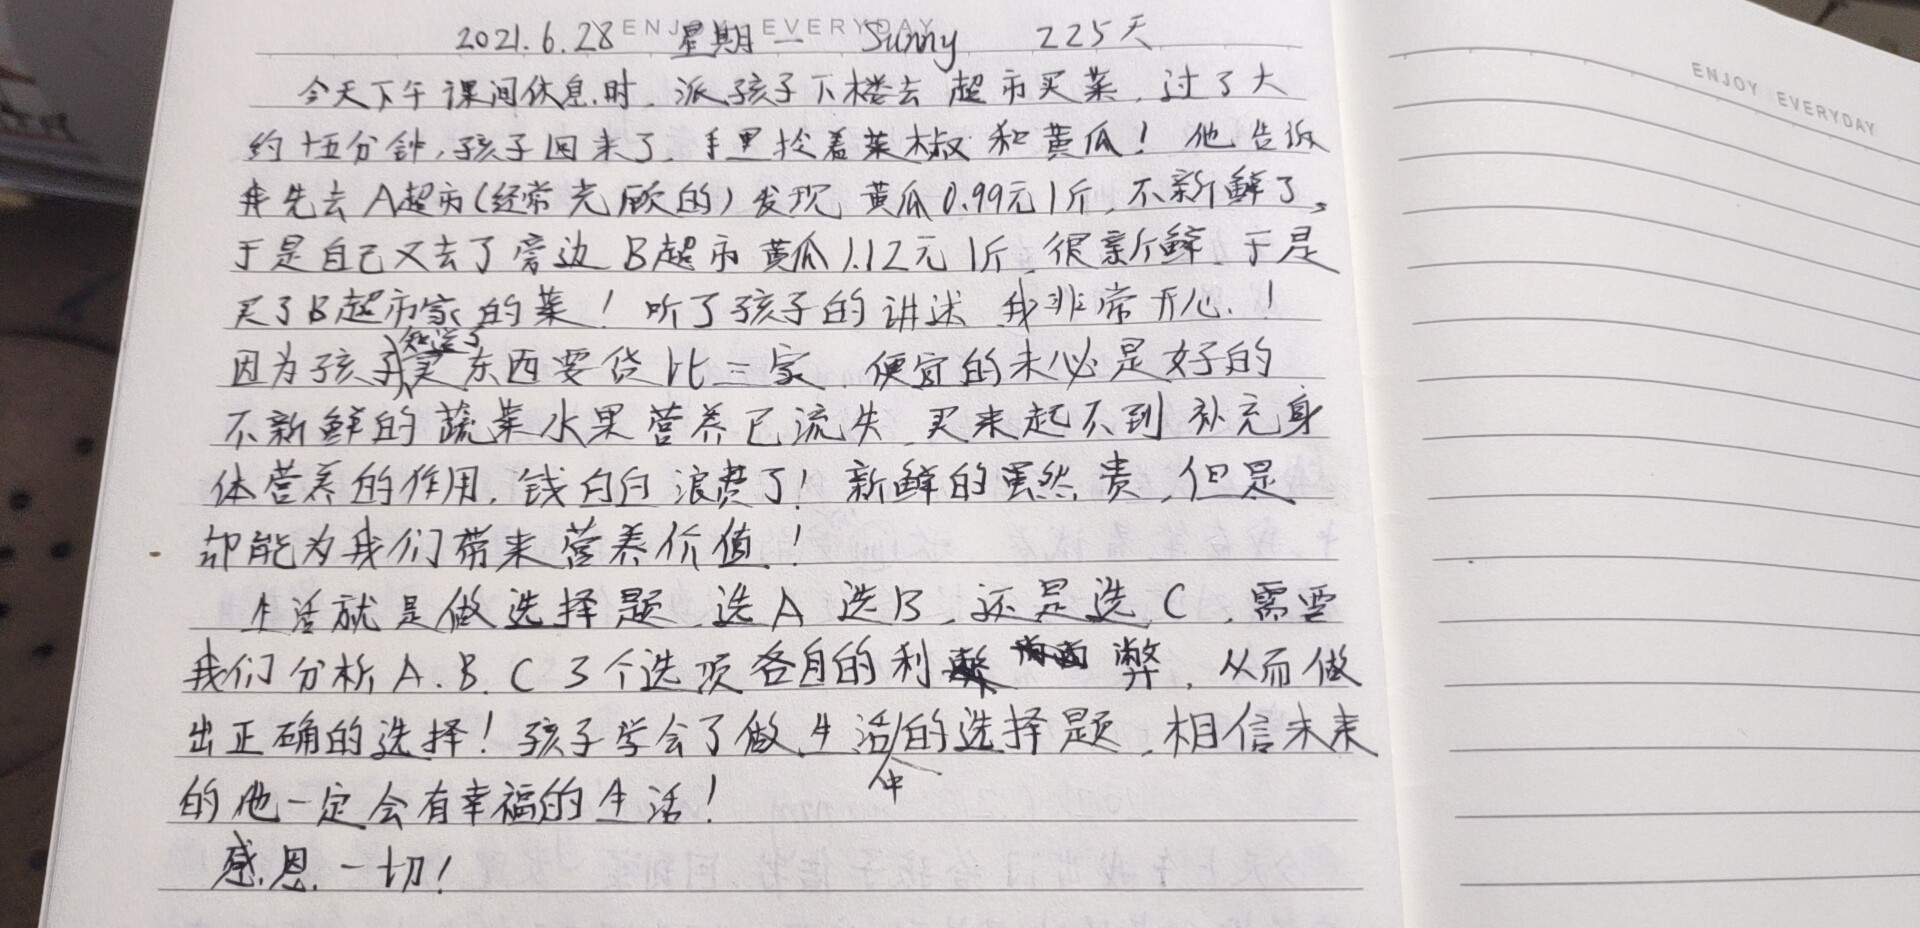 ENJOY EVERYDAY
2021.6.28 星期一 Sunny 225天
今天下午课间休息时，派孩子下楼去超市买菜，过了大
约十五分钟，孩子回来了，手里拎着菜椒和黄瓜！他告诉
我先去A超市(经常光顾的)发现黄瓜0.99元1斤，不新鲜了，
于是自己又去了旁边B超市黄瓜1.12元1斤，很新鲜，于是
买了B超市家的菜！听了孩子的讲述，我非常开心！
因为孩子知道了买东西要货比三家，便宜的未必是好的
不新鲜的蔬菜水果营养已流失，买来起不到补充身
体营养的作用，钱白白浪费了！新鲜的虽然贵，但是
却能为我们带来营养价值！
生活就是做选择题，选A选B，还是选C，需要
我们分析A.B.C 3个选项各自的利弊，从而做
出正确的选择！孩子学会了做生活中的选择题，相信未来
的他一定会有幸福的生活！
感恩一切！
ENJOY EVERYDAY